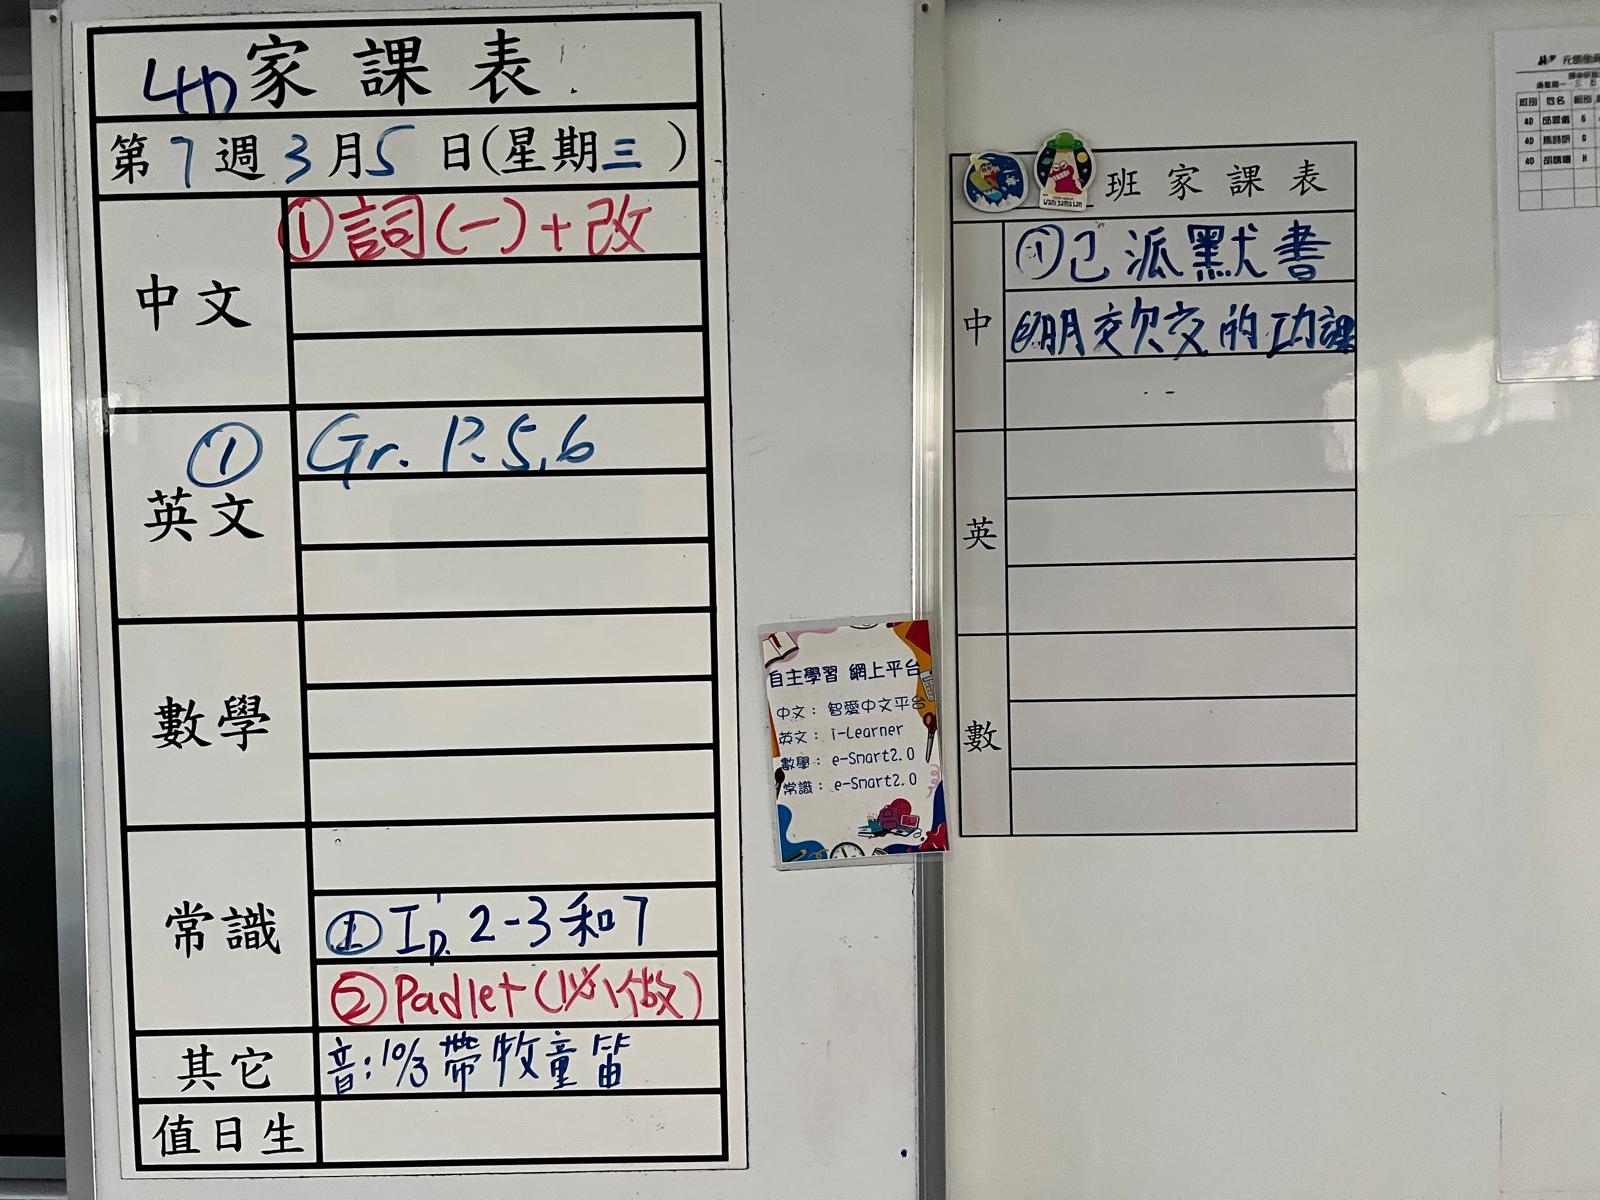 4D 家課表
第7週3月5日(星期三)
中文
①詞(一)+改
英文
① Gr. P.5,6
數學
常識
① ID. 2-3和7
② Padlet (必做)
其它
音:10/3帶牧童笛
值日生
班家課表
中
①已派默書
明交欠交的功課
英
數
自主學習 網上平台
中文: 智愛中文平台
英文: i-Learner
數學: e-Smart2.0
常識: e-Smart2.0
班別 姓名
4D
4D
4D